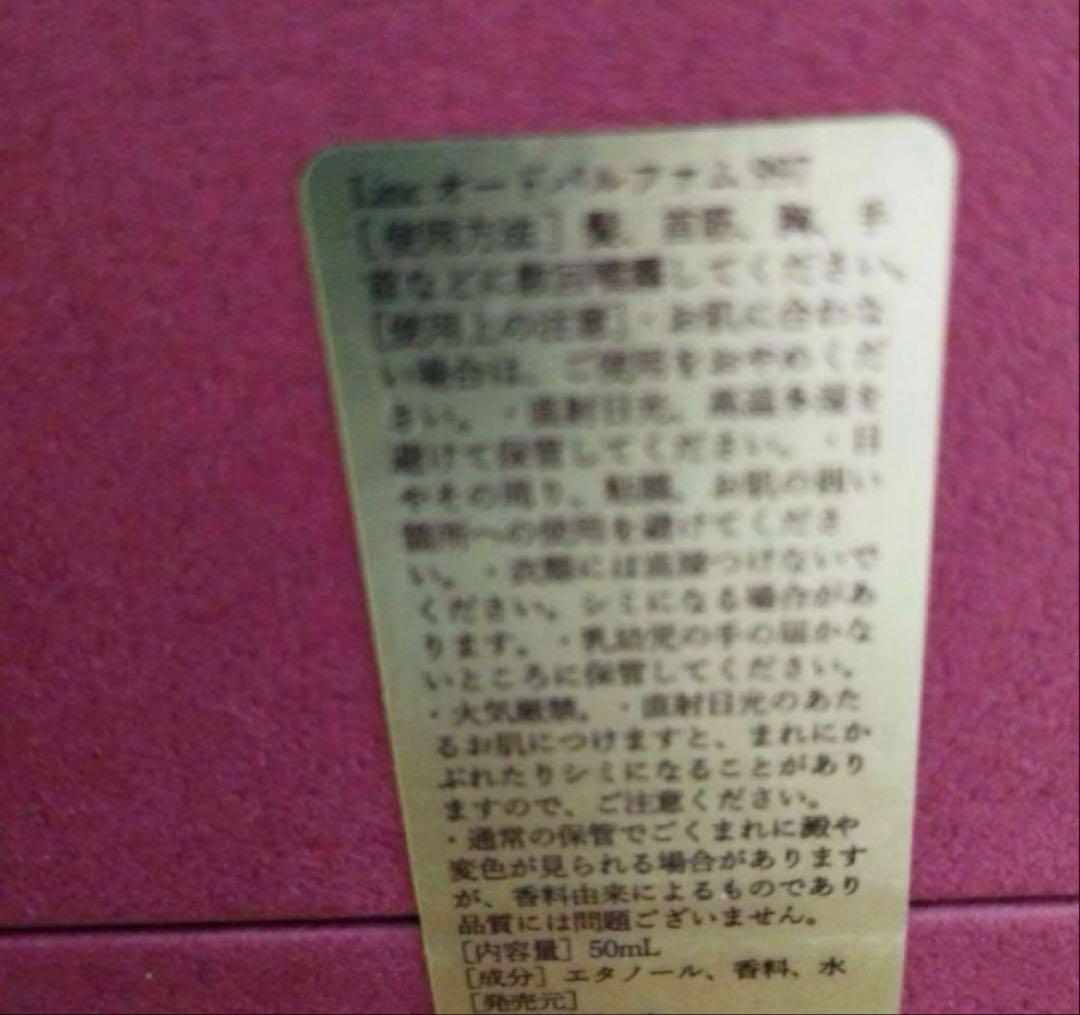 オードパルファム
[使用方法] 髪、首筋、胸、手
首などに数回噴霧してください。
[使用上の注意]・お肌に合わな
い場合は、ご使用をおやめくだ
さい。・直射日光、高温多湿を
避けて保管してください。・目
やその周り、粘膜、お肌の弱い
箇所への使用を避けてくださ
い。・衣類には直接つけないで
ください。シミになる場合があ
ります。・乳幼児の手の届かな
いところに保管してください。
・火気厳禁。・直射日光のあた
るお肌につけますと、まれにか
ぶれたりシミになることがあり
ますので、ご注意ください。
・通常の保管でごくまれに澱や
変色が見られる場合があります
が、香料由来によるものであり
品質には問題ございません。
[内容量] 50mL
[成分] エタノール、香料、水
[発売元]